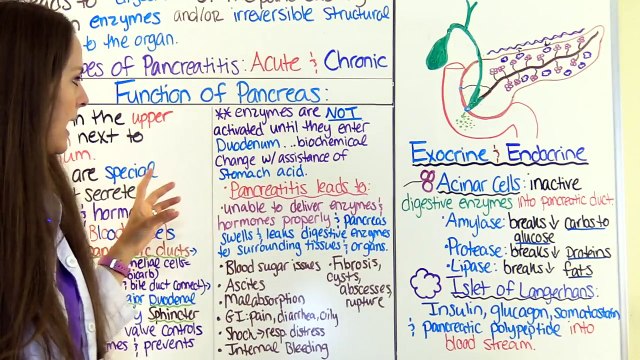 enzymes and/or irreversible structural
to the organ.
pes of Pancreatitis: Acute & Chronic
Function of Pancreas:
in the upper
next to
um.
are special
secrete
& hormo
Blood
tic ducts→
cells=
bile duct connect)→
Duodenal
Sphincter
valve controls
mes & prevents
** enzymes are NOT
activated until they enter
Duodenum...biochemical
change w/ assistance of
stomach acid.
• Pancreatitis leads to:
• unable to deliver enzymes &
hormones properly & pancreas
swells & leaks digestive enzymes
to surrounding tissues & organs.
• Blood sugar issues
• Ascites
• Malabsorption
• GI: pain, diarrhea, oily
• Shock→resp. distress
• Internal Bleeding
• Fibrosis,
cysts,
abscesses,
rupture
Exocrine & Endocrine
Acinar Cells: inactive
digestive enzymes into pancreatic duct.
• Amylase: breaks ↓ carbs to
glucose
• Protease: breaks ↓ proteins
• Lipase: breaks ↓ fats
Islet of Langerhans:
Insulin, glucagon, somatostatin
& pancreatic polypeptide into
blood stream.